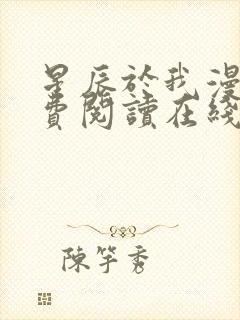 星辰於我漫
費閱讀在綫
陳竽秀